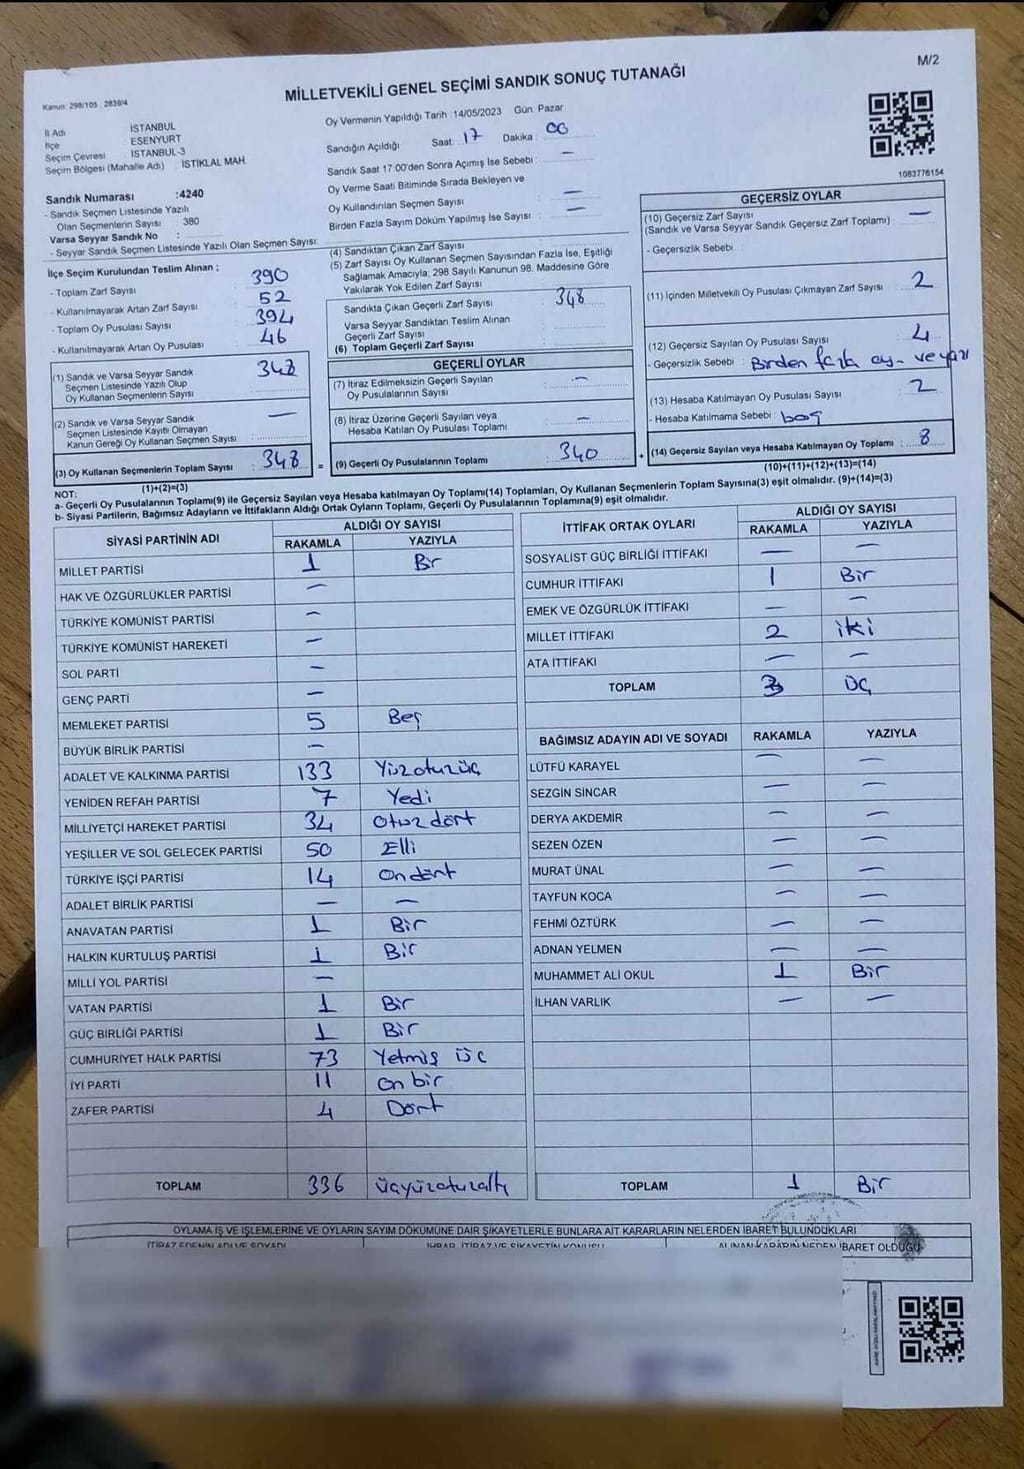 M/2
MİLLETVEKİLİ GENEL SEÇİMİ SANDIK SONUÇ TUTANAĞI
Kanun: 298/105 , 2839/4
İl Adı İSTANBUL
İlçe ESENYURT
Seçim Çevresi İSTANBUL-3
Seçim Bölgesi (Mahalle Adı) : İSTİKLAL MAH
Sandık Numarası :4240
- Sandık Seçmen Listesinde Yazılı
Olan Seçmenlerin Sayısı : 380
Varsa Seyyar Sandık No :
- Seyyar Sandık Seçmen Listesinde Yazılı Olan Seçmen Sayısı:
Oy Vermenin Yapıldığı Tarih :14/05/2023 Gün: Pazar
Sandığın Açıldığı Saat: 17 Dakika : 00
Sandık Saat 17.00'den Sonra Açımış İse Sebebi : —
Oy Verme Saati Bitiminde Sırada Bekleyen ve
Oy Kullandırılan Seçmen Sayısı : —
Birden Fazla Sayım Döküm Yapılmış İse Sayısı : —
1083776154
İlçe Seçim Kurulundan Teslim Alınan ;
- Toplam Zarf Sayısı : 390
- Kullanılmayarak Artan Zarf Sayısı : 52
- Toplam Oy Pusulası Sayısı : 394
- Kullanılmayarak Artan Oy Pusulası : 46
(1) Sandık ve Varsa Seyyar Sandık
Seçmen Listesinde Yazılı Olup
Oy Kullanan Seçmen Sayısı : 348
(2) Sandık ve Varsa Seyyar Sandık
Seçmen Listesinde Kayıtlı Olmayan
Kanun Gereği Oy Kullanan Seçmen Sayısı : —
(3) Oy Kullanan Seçmenlerin Toplam Sayısı : 348
(1)+(2)=(3)
(4) Sandıktan Çıkan Zarf Sayısı
(5) Zarf Sayısı Oy Kullanan Seçmen Sayısından Fazla İse, Eşitliği
Sağlamak Amacıyla; 298 Sayılı Kanunun 98. Maddesine Göre
Yakılarak Yok Edilen Zarf Sayısı :
Sandıkta Çıkan Geçerli Zarf Sayısı : 348
Varsa Seyyar Sandıktan Teslim Alınan
Geçerli Zarf Sayısı :
(6) Toplam Geçerli Zarf Sayısı :
GEÇERLİ OYLAR
(7) İtiraz Edilmeksizin Geçerli Sayılan
Oy Pusulalarının Sayısı : —
(8) İtiraz Üzerine Geçerli Sayılan veya
Hesaba Katılan Oy Pusulası Toplamı : —
= (9) Geçerli Oy Pusulalarının Toplamı : 340 +
GEÇERSİZ OYLAR
(10) Geçersiz Zarf Sayısı : —
(Sandık ve Varsa Seyyar Sandık Geçersiz Zarf Toplamı)
- Geçersizlik Sebebi :
(11) İçinden Milletvekili Oy Pusulası Çıkmayan Zarf Sayısı : 2
(12) Geçersiz Sayılan Oy Pusulası Sayısı : 4
- Geçersizlik Sebebi : Birden fazla oy
(13) Hesaba Katılmayan Oy Pusulası Sayısı : 2
- Hesaba Katılmama Sebebi : boş
(14) Geçersiz Sayılan veya Hesaba Katılmayan Oy Toplamı : 8
(10)+(11)+(12)+(13)=(14)
NOT:
a- Geçerli Oy Pusulalarının Toplamı(9) ile Geçersiz Sayılan veya Hesaba katılmayan Oy Toplamı(14) Toplamları, Oy Kullanan Seçmenlerin Toplam Sayısına(3) eşit olmalıdır. (9)+(14)=(3)
b- Siyasi Partilerin, Bağımsız Adayların ve İttifakların Aldığı Ortak Oyların Toplamı, Geçerli Oy Pusulalarının Toplamına(9) eşit olmalıdır.
SİYASİ PARTİNİN ADI ALDIĞI OY SAYISI
RAKAMLA YAZIYLA
MİLLET PARTİSİ 1 Bir
HAK VE ÖZGÜRLÜKLER PARTİSİ —
TÜRKİYE KOMÜNİST PARTİSİ —
TÜRKİYE KOMÜNİST HAREKETİ —
SOL PARTİ —
GENÇ PARTİ —
MEMLEKET PARTİSİ 5 Beş
BÜYÜK BİRLİK PARTİSİ —
ADALET VE KALKINMA PARTİSİ 133 Yüzotuzüç
YENİDEN REFAH PARTİSİ 7 Yedi
MİLLİYETÇİ HAREKET PARTİSİ 34 Otuz dört
YEŞİLLER VE SOL GELECEK PARTİSİ 50 Elli
TÜRKİYE İŞÇİ PARTİSİ 14 On dört
ADALET BİRLİK PARTİSİ — —
ANAVATAN PARTİSİ 1 Bir
HALKIN KURTULUŞ PARTİSİ 1 Bir
MİLLİ YOL PARTİSİ —
VATAN PARTİSİ 1 Bir
GÜÇ BİRLİĞİ PARTİSİ 1 Bir
CUMHURİYET HALK PARTİSİ 73 Yetmiş üç
İYİ PARTİ 11 on bir
ZAFER PARTİSİ 4 Dört
TOPLAM 336 üçyüzotuzaltı
İTTİFAK ORTAK OYLARI ALDIĞI OY SAYISI
RAKAMLA YAZIYLA
SOSYALİST GÜÇ BİRLİĞİ İTTİFAKI — —
CUMHUR İTTİFAKI 1 Bir
EMEK VE ÖZGÜRLÜK İTTİFAKI — —
MİLLET İTTİFAKI 2 iki
ATA İTTİFAKI — —
TOPLAM 3 üç
BAĞIMSIZ ADAYIN ADI VE SOYADI RAKAMLA YAZIYLA
LÜTFÜ KARAYEL — —
SEZGİN SİNCAR — —
DERYA AKDEMİR — —
SEZEN ÖZEN — —
MURAT ÜNAL — —
TAYFUN KOCA — —
FEHMİ ÖZTÜRK — —
ADNAN YELMEN — —
MUHAMMET ALİ OKUL 1 Bir
İLHAN VARLIK — —
TOPLAM 1 Bir
OYLAMA İŞ VE İŞLEMLERİNE VE OYLARIN SAYIM DÖKÜMÜNE DAİR ŞİKAYETLERLE BUNLARA AİT KARARLARIN NELERDEN İBARET BULUNDUKLARI
İTİRAZ EDENİN ADI VE SOYADI İHBAR, İTİRAZ VE ŞİKAYETİN KONUSU ALINAN KARARIN NEDEN İBARET OLDUĞU